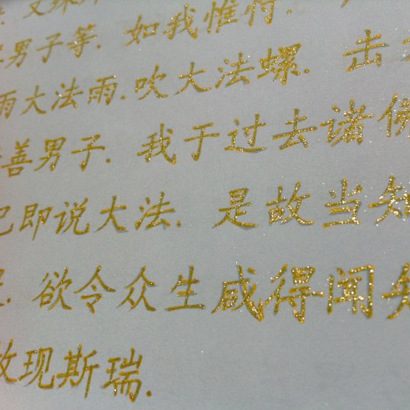 男子等. 如我惟忖.
雨大法雨.吹大法螺. 击
善男子. 我于过去诸佛
已即说大法. 是故当知
欲令众生咸得闻知
故现斯瑞.